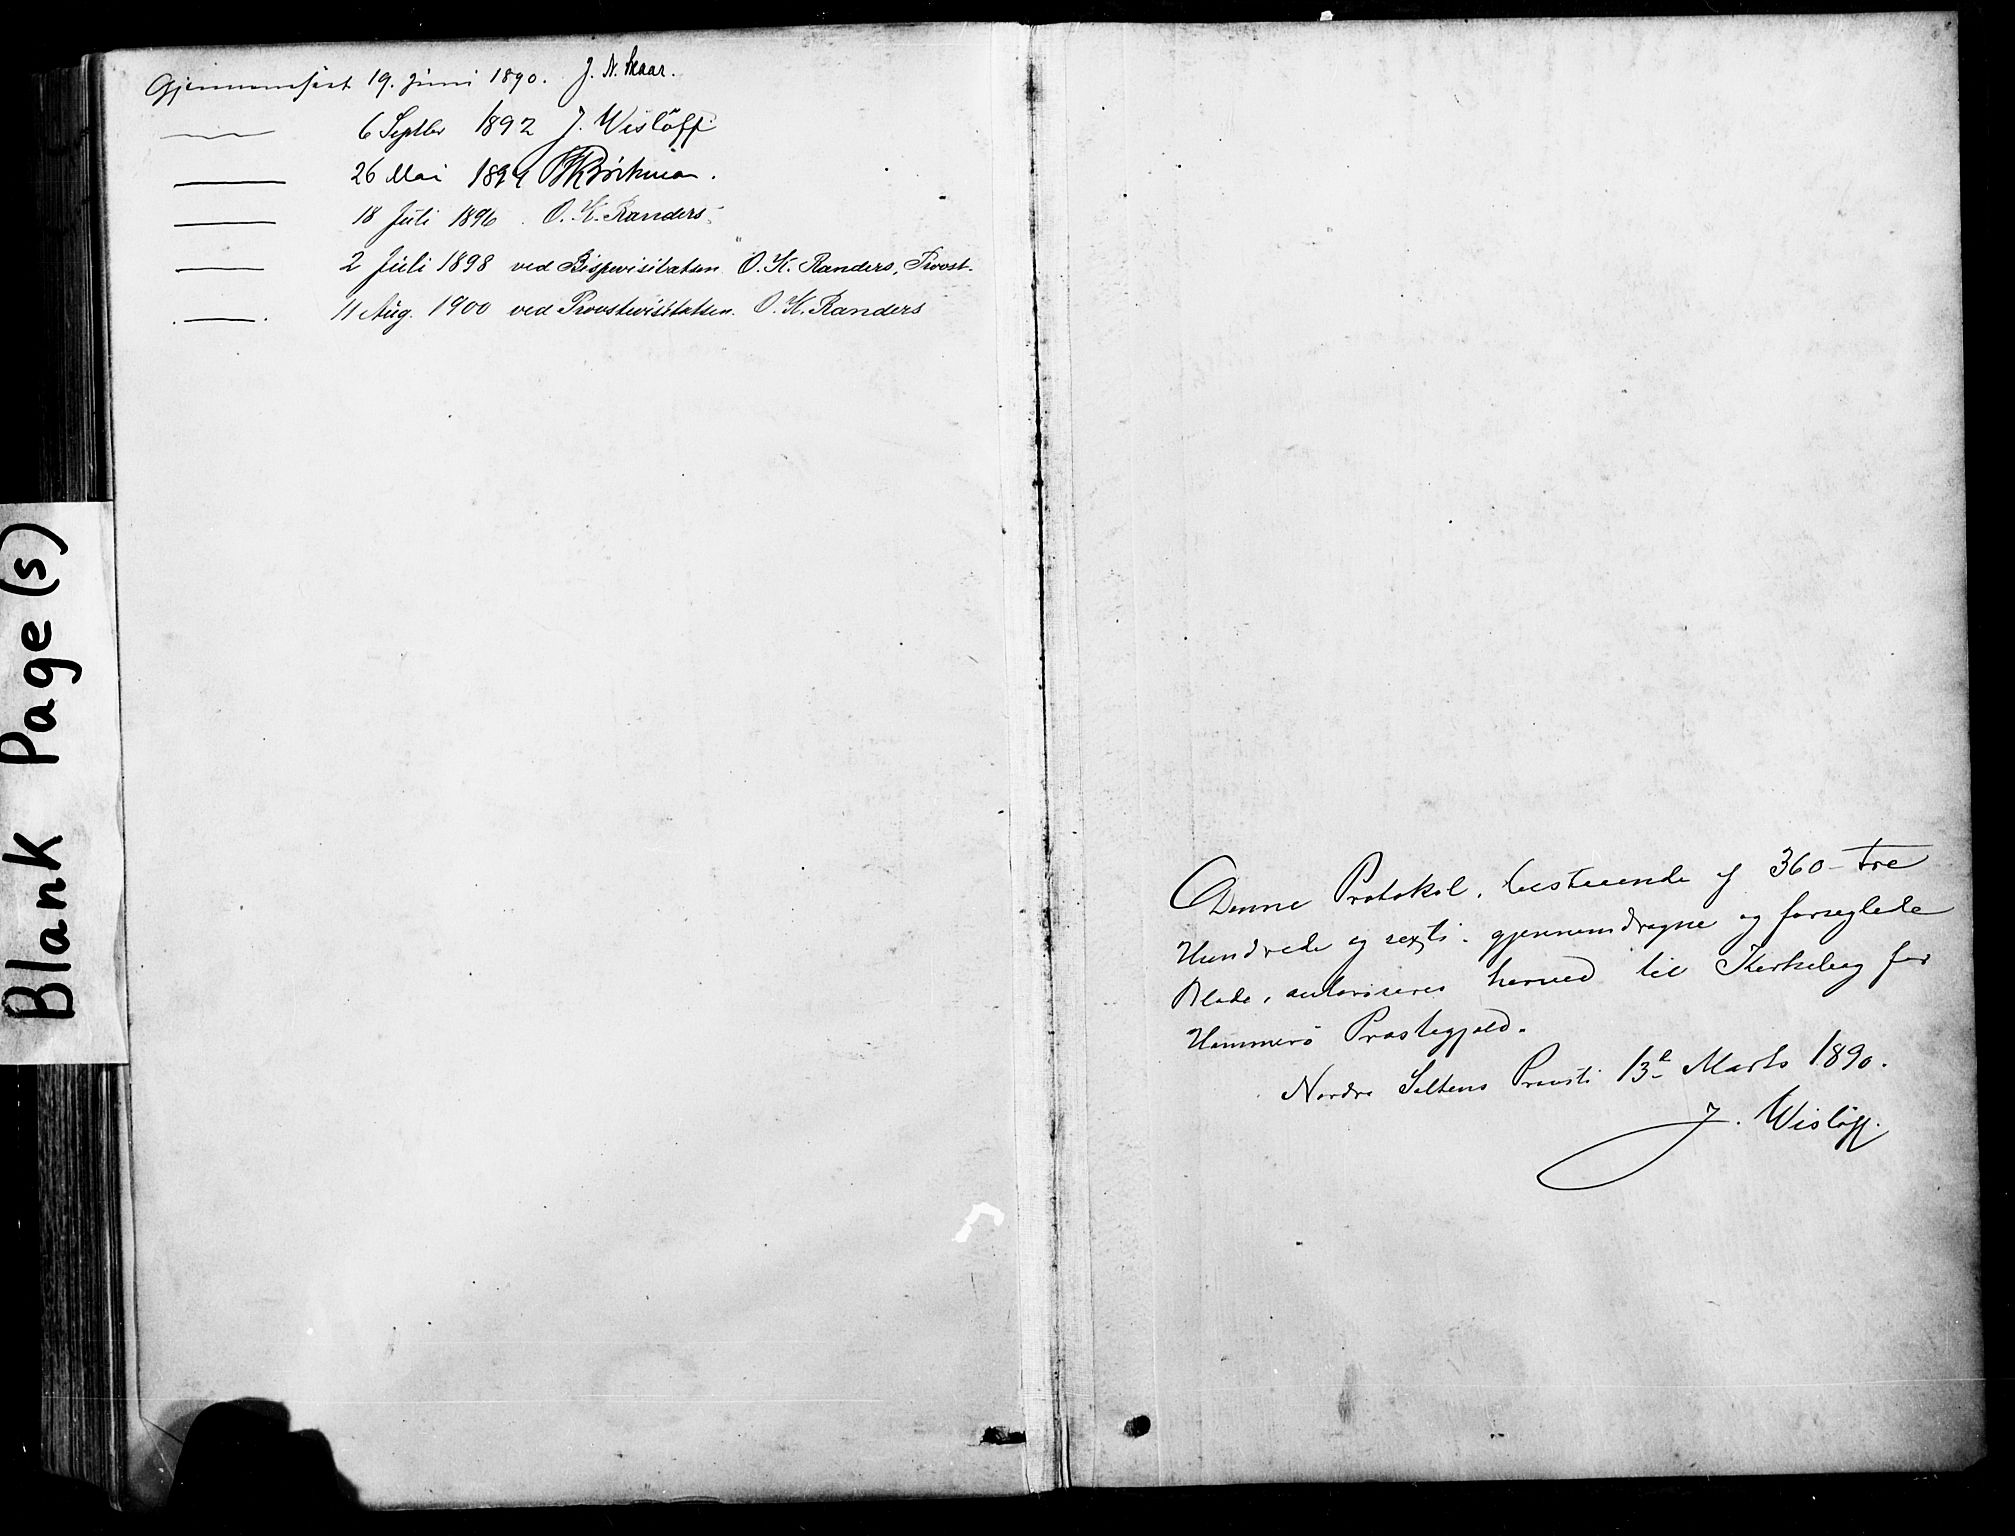 Gjennemseet 19. Juni 1890. J. N. Skaar.
— 6 Septbr 1892 J. Wisløff
— 26 Mai 1894
— 18 Juli 1896. O. K. Randers.
— 2 Juli 1898 ved Bispevisitatsen O. K. Randers, Provst.
— 11 Aug. 1900 ved Provstevisitatsen. O. K. Randers
Blank Page(s)
Denne Protokol, bestaaende af 360 - tre
Hundrede og sexti - gjennemdragne og forseglede
Blade, autoriseres herved til Kirkebog for
Hammerö Præstegjeld.
Nordre Saltens Provsti 13de Marts 1890.
J. Wisløff.